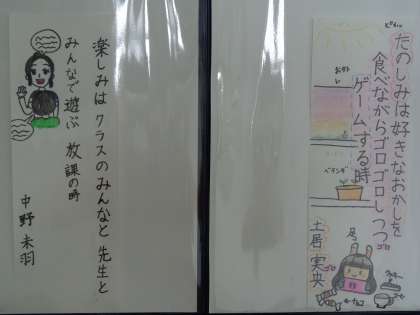 たのしみは好きなおかしを
食べながらゴロゴロしつつ
ゲームする時
土居 実央
ベランダ
楽しみは クラスのみんなと 先生と
みんなで遊ぶ 放課の時
中野 未羽